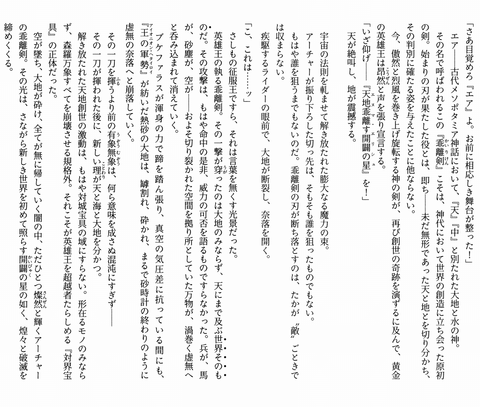 「さあ目覚めろ『エア』よ。お前に相応しき舞台が整った！」
エア――古代メソポタミア神話において、『天』『中』と別たれた大地と水の神。
その名で呼ばれるこの『乖離剣』こそは、神代において世界の創造に立ち会った原初
の剣。始まりの刃が果たした役とは、即ち――未だ無形であった天と地とを切り分かち、
その判別に確たる姿を与えたことに他ならない。
今、傲然と烈風を巻き上げ旋転する神の剣が、再び創世の奇跡を演ずるに及んで、黄金
の英雄王は昂然と声を張り宣言する。
「いざ仰げ――『天地乖離す開闢の星』を！」
天が絶叫し、地が震撼する。
宇宙の法則を軋ませて解き放たれた膨大なる魔力の束。
アーチャーが振り下ろした切っ先は、そもそも誰を狙ったものでもない。
もはや誰を狙うまでもないのだ。乖離剣の刃が断ち落とすのは、たかが〝敵〟ごときで
は収まらない。
疾駆するライダーの眼前で、大地が断裂し、奈落を開く。
「こ、これは――ッ」
さしもの征服王ですら、それは言葉を無くす光景だった。
英雄王の執る乖離剣。その一撃が穿ったのは大地のみならず、天にまで及ぶ世界そのも
のだ。その攻撃は、もはや命中の是非、威力の可否を語るものですらなかった。兵が、馬
が、砂塵が、空が――およそ切り裂かれた空間を拠り所としていた万物が、渦巻く虚無へ
と呑み込まれて消えていく。
ブケファラスが渾身の力で蹄を踏ん張り、真空の気圧差に抗っている間にも、
『王の軍勢』が紡いだ熱砂の大地は、罅割れ、砕かれ、まるで砂時計の終わりのように
虚無の奈落へと崩落していく。
その一刀を揮うより前の有象無象は、何ら意味を成さぬ混沌にすぎず――
その一刀が揮われた後に、新しい理が天と海と大地を分かつ。
解き放たれた天地創世の激動は、もはや対城宝具の域にすらない。形在るモノのみなら
ず、森羅万象すべてを崩壊させる規格外。それこそが英雄王を超越者たらしめる『対界宝
具』の正体だった。
空が墜ち、大地が砕け、全てが無に帰していく闇の中、ただひとつ燦然と輝くアーチャー
の乖離剣。その光は、さながら新しき世界を初めて照らす開闢の星の如く、煌々と破滅を
締めくくる。